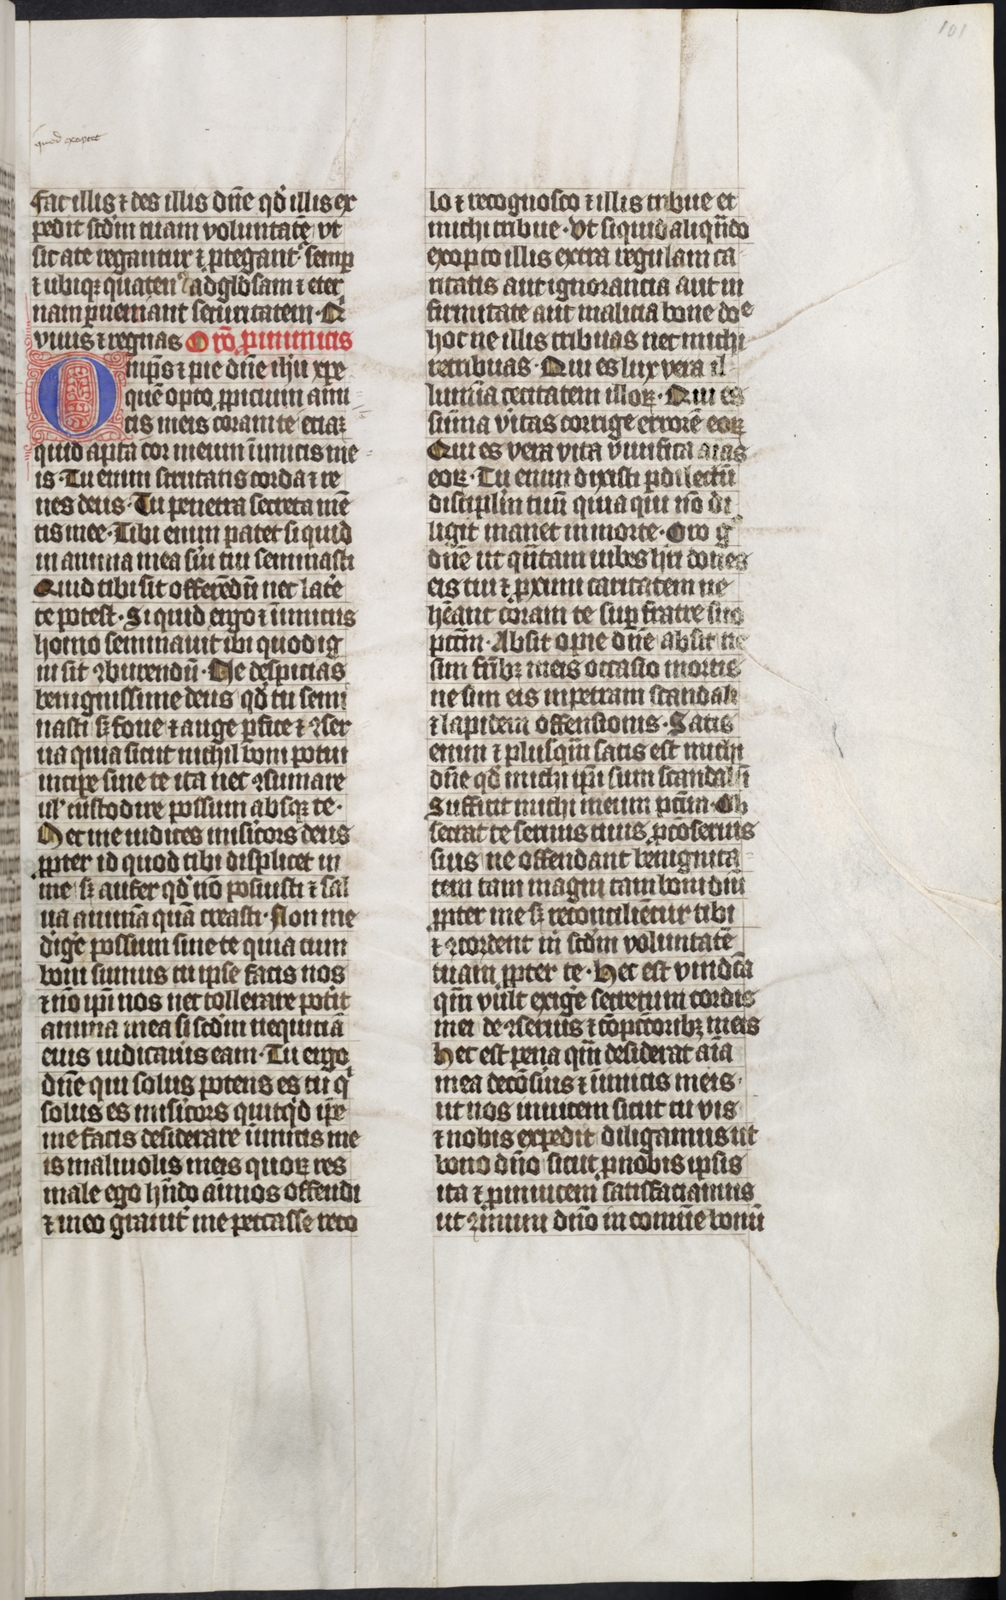 101
fac illis ⁊ des illis dn̄e qđ illis ex
pedit scđm tuam voluntatē vt
sic a te regantur ⁊ ꝓtegant᷑ semꝑ
⁊ ubiqꝫ quaten᷒ ad glōsam ⁊ eter
nam ꝑueniant securitatem · Q
viuis ⁊ regnas Orō ꝓ inimicis
Omips ⁊ pie dn̄e ihū xp̄e
quē opto ꝓpicium ami
cis meis coram te etiaꝫ
quid apta cor meum inimicis me
is · Tu enim scrutatis corda ⁊ re
nes deus · Tu penetra secreta mē
tis mee · Tibi enim patet si quid
in anima mea sūi tui seminasti
Quid tibi sit offerēdū nec late
te potest · Si quid ergo ⁊ inimicus
homo seminauit ibi quod ig
ni sit ꝯburendū · Ne despicias
benignissime deus qđ tu semi
nasti sꝫ foue ⁊ auge ꝑfice ⁊ ꝯser
ua quia sicut nichil boni potui
incipe sine te ita nec ꝯsumare
ul᷑ custodire possum absqꝫ te ·
Nec me iudices misicors deus
ꝓpter id quod tibi displicet in
me sꝫ aufer qđ nō posuisti ⁊ sal
ua animā quā creasti · Non me
dige possum sine te quia cum
boni sumus tu ipse facis nos
⁊ nō ipī nos nec tollerare potit
anima mea si scđm nequiciā
eius iudicauis eam · Tu ergo
dn̄e qui solus potens es tu q
solus es misicors quicqđ ip̄e
me facis desiderare inimicis me
is maliuolis meis quoꝝ res
male ego hn̄do animos offendi
⁊ meo grauit᷑ me peccasse reco
lo ⁊ recognosco ⁊ illis tribue et
michi tribue · Vt si quid aliqn̄do
exopto illis extra regulam ca
ritatis aut ignorancia aut in
firmitate aut malicia bone dn̄e
hoc ne illis tribuas nec michi
retribuas · Qui es lux vera il
lumīa cecitatem illoꝝ · Qui es
sūma v̄itas corrige errorē eoꝝ
Qui es vera vita viuifica aīas
eoꝝ · Tu enim dixisti ꝑ dilectū
discipl̄m tuū quia qui nō di
ligit manet in morte · Oro g
dn̄e ut qn̄tam iubes hr̄i dones
eis tui ⁊ ꝓximi caritatem ne
hēant coram te suꝑ fratre suo
pctm̄ · Absit o pie dn̄e absit ne
sim frībꝫ meis occasio mortis
ne sim eis in petram scandali
⁊ lapidem offensionis · Satis
enim ⁊ plusqm̄ satis est michi
dn̄e qđ michi ipī sum scandalū
Sufficit michi meum pctm̄ · Ob
secrat te seruus tuus ꝓ cōseruis
suis ne offendant benignita
tem tam magni tam boni dn̄i
ꝓpter me sꝫ reconcilientur tibi
⁊ ꝯcordent m̄ scđm voluntatē
tuam ꝓpter te · Hec est vindcā
qm̄ vult exige secretum cordis
mei de ꝯseruis ⁊ cōpctoribꝫ meis
hec est pena qm̄ desiderat aīa
mea de cōsuis ⁊ inimicis meis ·
ut nos inuicem sicut tu vis
⁊ nobis expedit diligamus ut
bono dn̄o sicut ꝓ nobis ipsis
ita ⁊ ꝓ inuicem satisfaciamus
ut ꝯmuni dn̄o in comūe bonū